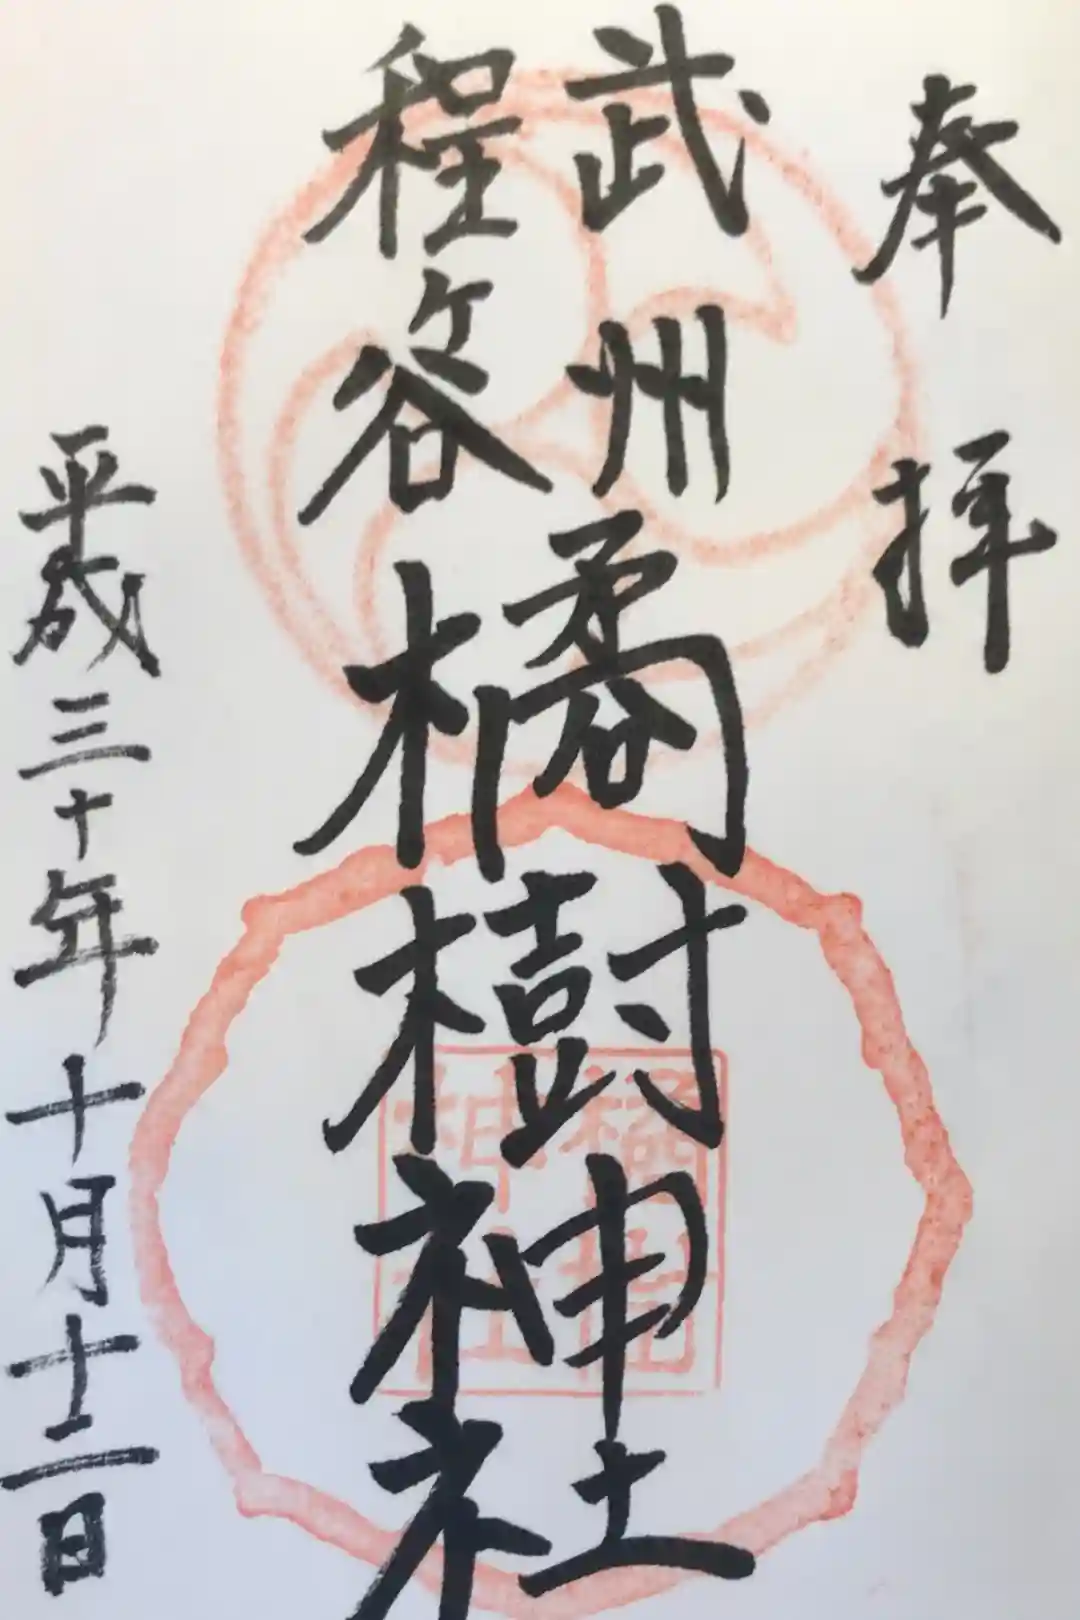 奉拝
武州
程ヶ谷
橘樹神社
平成三十年十月十二日
橘樹
神社